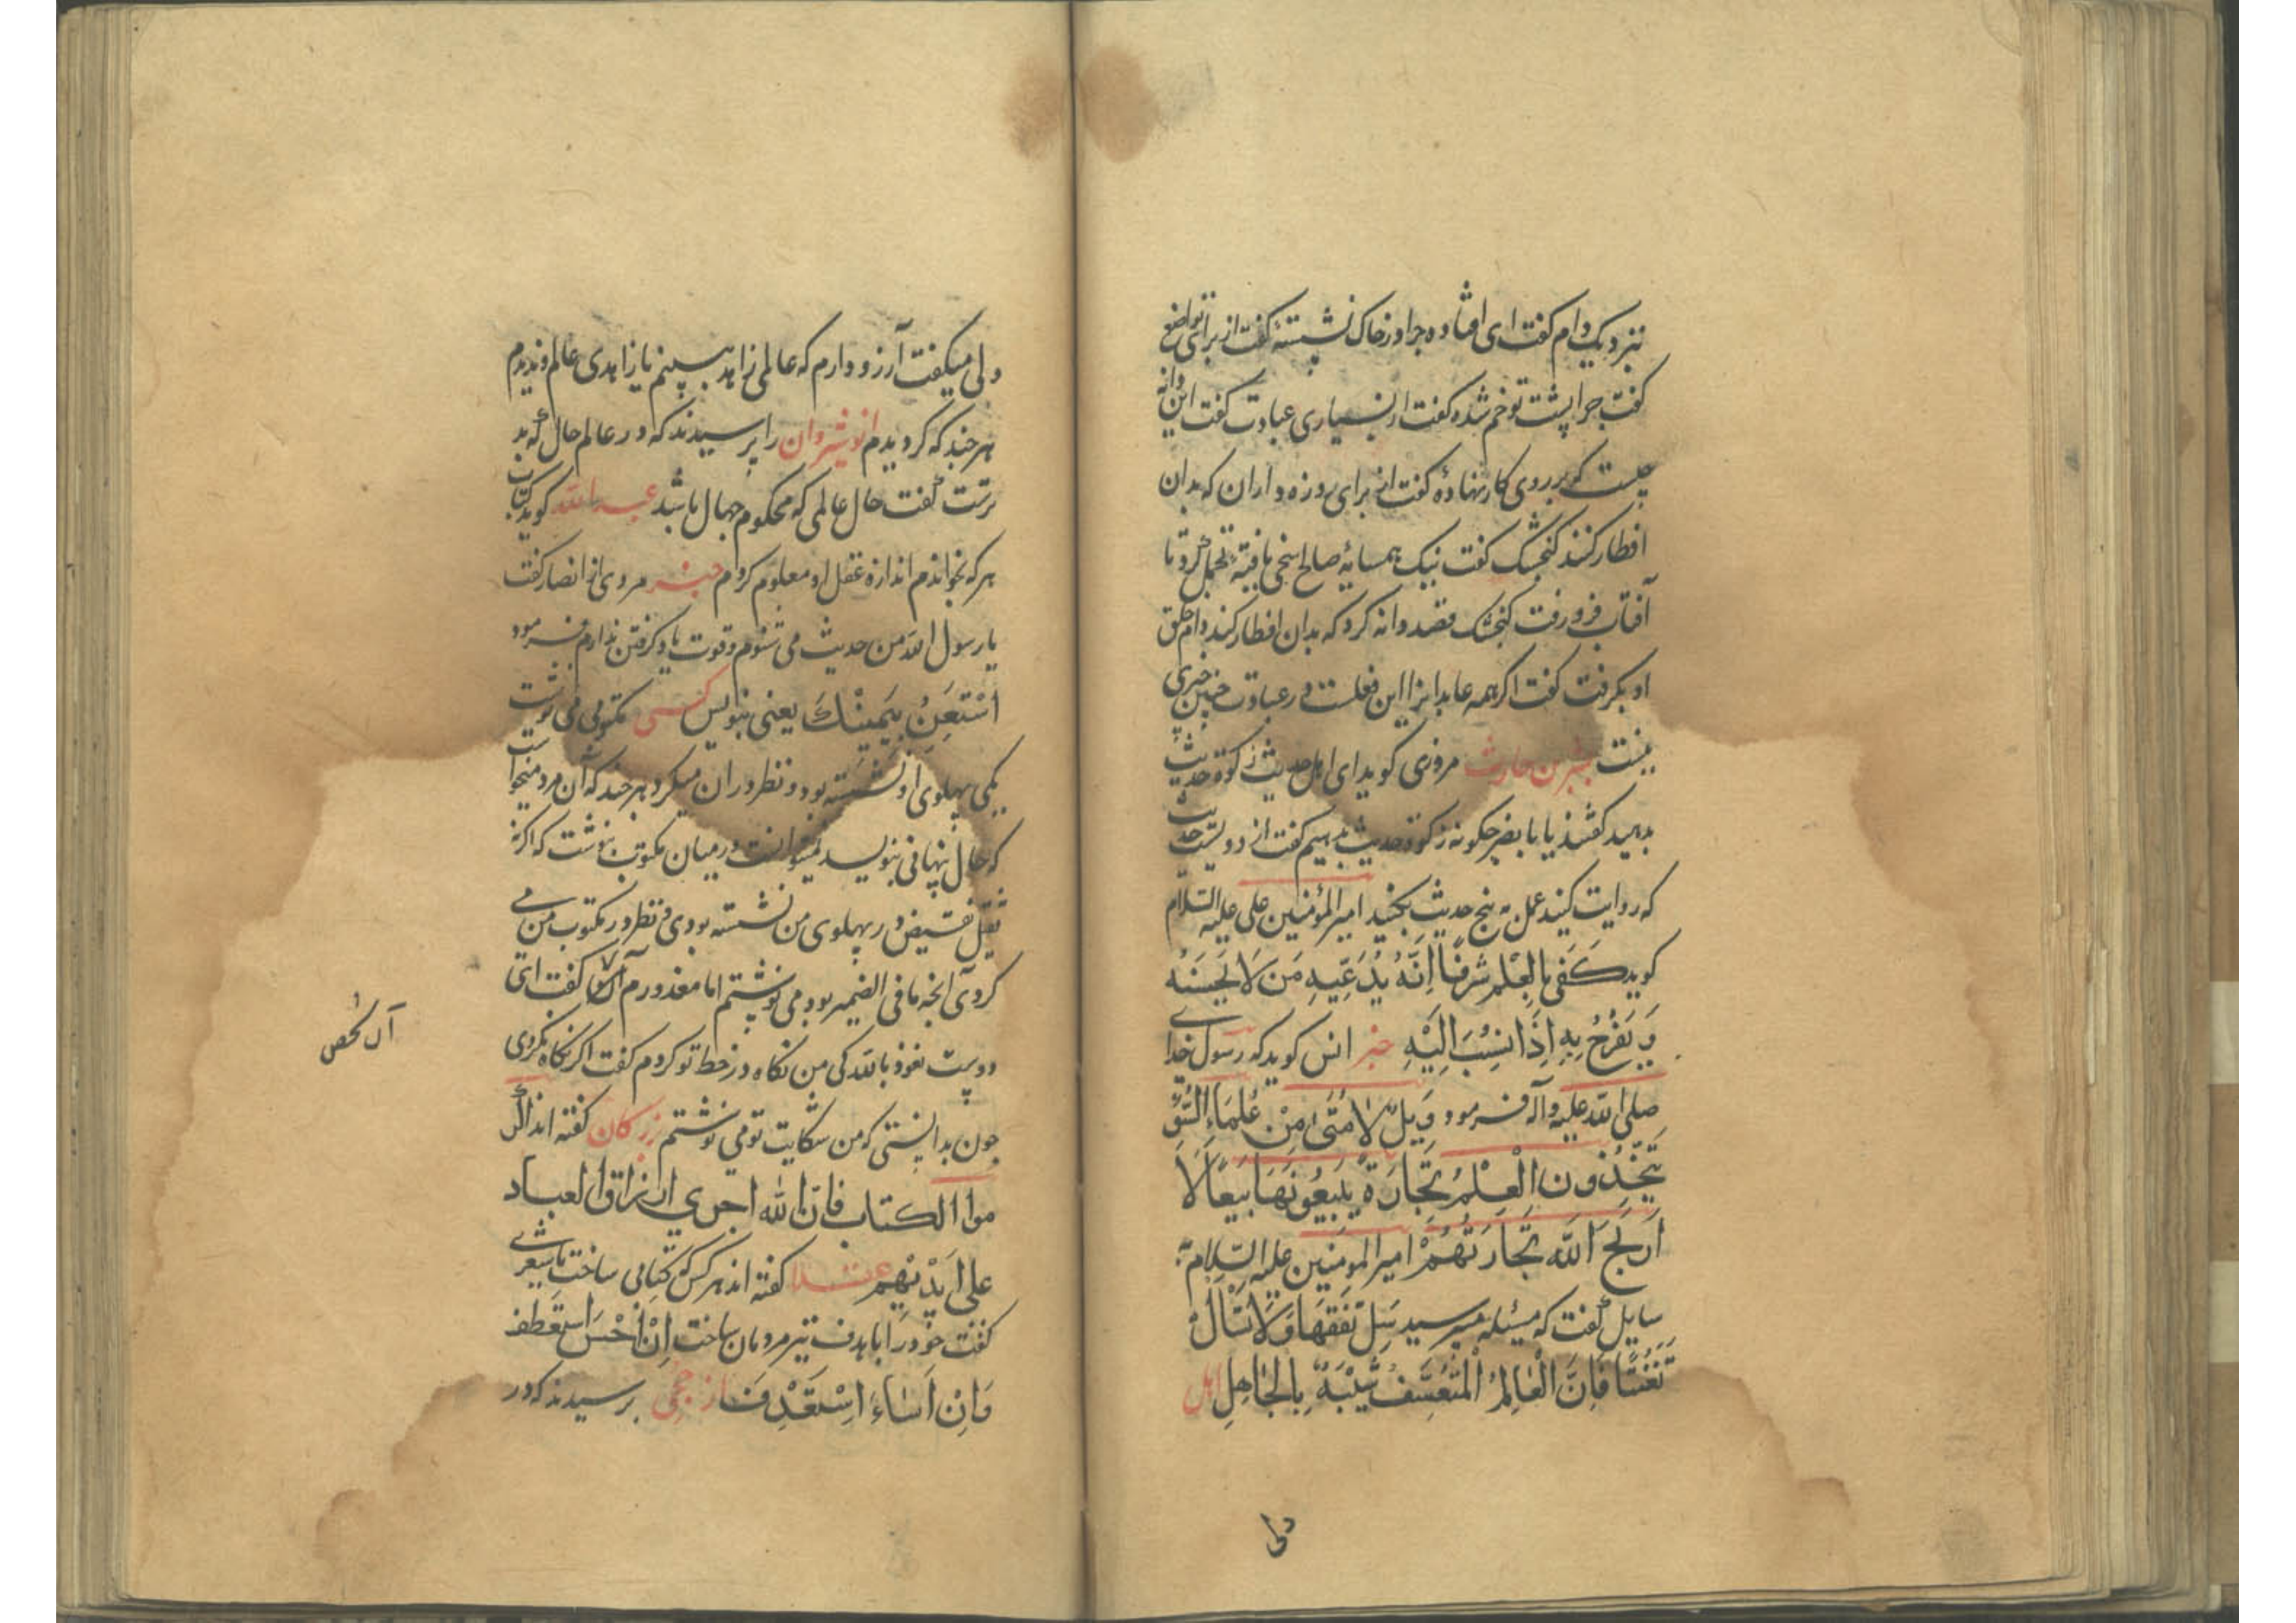 نزدیک دام گفت ای افتاده چرا در خاک نشسته گفت از برای تواضع
گفت چرا پشت تو خم شده گفت از بسیاری عبادت گفت این دانه
چیست که بر روی کار نهادهٔ گفت از برای روزه داران که بدان
افطار کنند کنجشک گفت نیک همسایهٔ صالح اینجا یافتیم تا
آفتاب فرو رفت کنجشک قصد دانه کرد که بدان افطار کند دام حلق
او بگرفت گفت اگر همه عابدانرا این فعلست در عبادت خیری
نیست بشر بن حارث مروزی گوید ای اهل حدیث زکوة حدیث
بدهید گفتند یا با نصر چگونه زکوة حدیث بدهیم گفت از دویست حدیث
که روایت کنید عمل به پنج حدیث بکنید امیر المؤمنین علی علیه السلام
گوید کَفی بالعِلْمِ شَرفًا اِنَّهُ یَدَّعِیهِ مَن لَا یُحسِنُهُ
وَ یَفْرَحُ بِهِ اِذَا نُسِبَ اِلَیْهِ خبر انس گوید که رسول خدا
صلی الله علیه وآله فرمود وَیلٌ لِاُمَّتی مِنْ عُلَمَاءِ السُّوْءِ
یَتَّخِذُونَ الْعِلْمَ تِجَارَةً یَبِیعُونَهَا بَیعًا لَا
اَربَحَ اللّه تِجَارَتَهُمْ امیر المومنین علیه السلام به
سایل گفت که مسئله میپرسید سَل تَفَقُّهًا وَلَا تَسْأَلْ
تَعَنُّتًا فَاِنَّ الْعَالِمَ الْمُتَعَسِّفَ شَبِیهٌ بِالْجَاهِلِ اهل
دلی
ولی میگفت آرزو دارم که عالمی زاهد ببینم یا زاهدی عالم و ندیدم
هر چند که گردیدم انوشیروان را پرسیدند که در عالم حال که بد
ترست گفت حال عالمی که محکوم جهال باشد عبدالله گوید کتاب
هر که بخواندم اندازه عقل او معلوم کردم خبر مردی از انصار گفت
یا رسول الله من حدیث می شنوم و قوت یاد گرفتن ندارم فرمود
اسْتَعِنْ بِیَمِینِکَ یعنی بنویس کسی مکتوبی می نوشت
یکی پهلوی او نشسته بود و نظر در ان میکرد هر چند که آن مرد میخواست
که حال پنهانی بنویسد نمیتوانست در میان مکتوب بنوشت که اگر نه
ثقیل در پهلوی من نشسته بودی و نظر در مکتوب من می
کردی آنچه ما فی الضمیر بود می نوشتم اما معذورم گفت ای
دوست نعوذ بالله کی من نگاه در خط تو کردم گفت اگر نگاه نکردی
چون بدانستی که من شکایت تو می نوشتم بزرگان گفته اند
موا الکتاب فانّ الله اجری ارزاق العباد
علی ایدیهم گفته اند هر کس که کتابی ساخت یا شعری
گفت خود را با هدف تیر مردمان ساخت اِنْ اَحْسَنَ اسْتَعْطَفَ
وَاِنْ اَسَاءَ اِسْتَقْذَفَ از پرسیدند که در
آن شخص